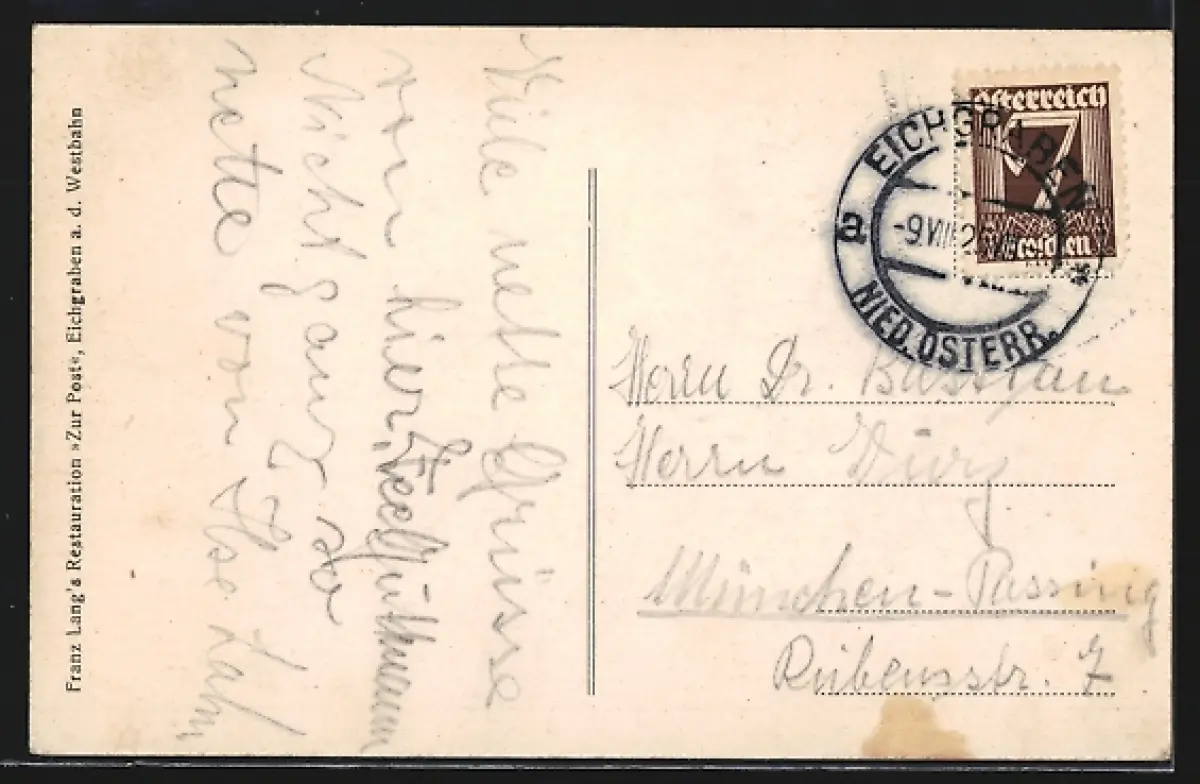 Franz Lang's Restauration »Zur Post«, Eichgraben a. d. Westbahn
Viele nette Grüsse
von hier,
Nicht ganz so
nette von Ilse
Österreich
7
Groschen
EICHGRABEN
a
-9.VIII
NIED. ÖSTERR.
*
Herrn Dr.
Herrn
München-Passing
Rubensstr. 7